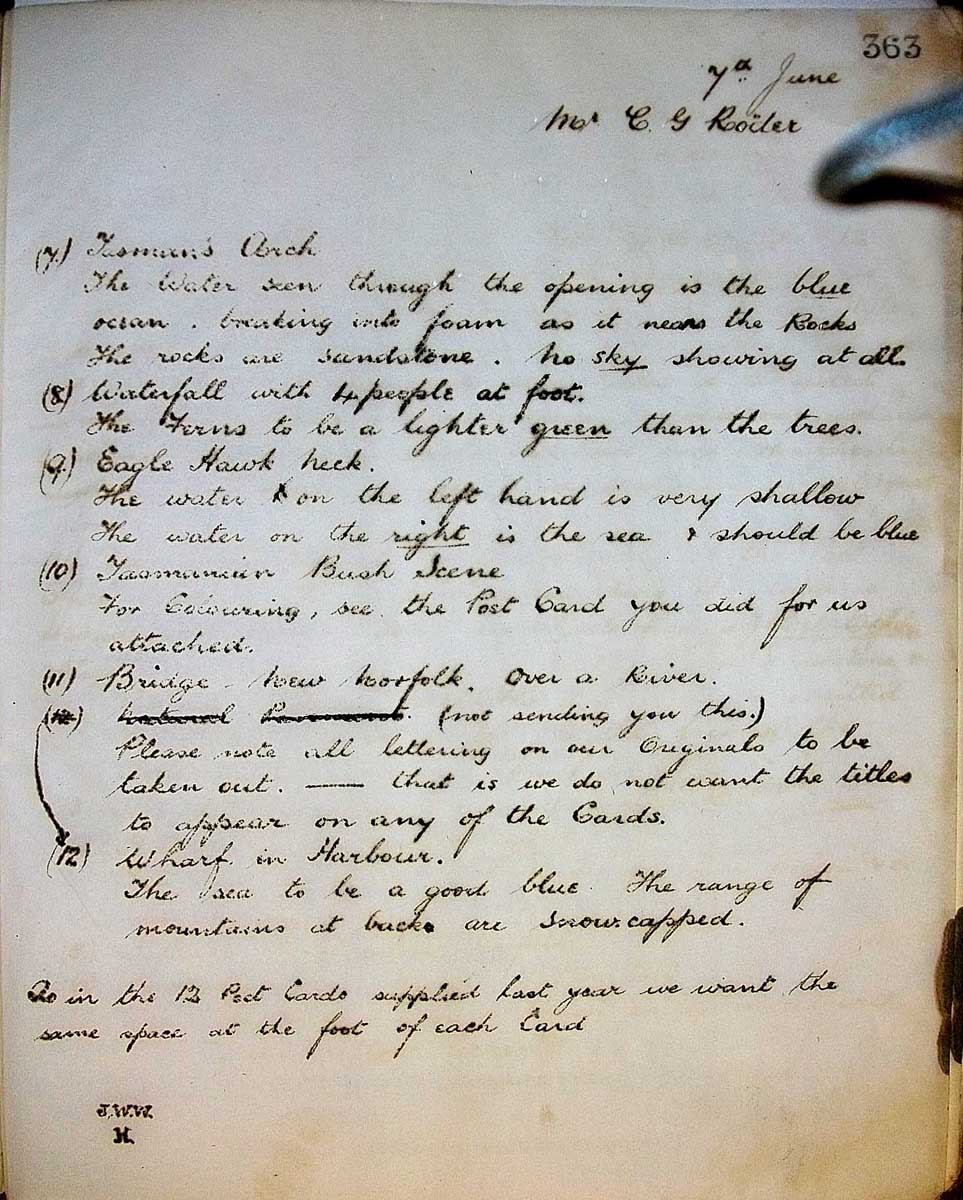 363
7th June
Mr C. G Roder
(7) Tasman's Arch
The Water seen through the opening is the blue
ocean. breaking into foam as it nears the Rocks
The rocks are sandstone. No sky showing at all.
(8) Waterfall with 4 people at foot.
The Ferns to be a lighter green than the trees.
(9) Eagle Hawk Neck.
The water on the left hand is very shallow
The water on the right is the sea & should be blue
(10) Tasmanian Bush Scene
For Colouring, see the Post Card you did for us
attached.
(11) Bridge - New Norfolk. Over a River.
(12) Natural Pavement. (not sending you this.)
Please note all lettering on our Originals to be
taken out. — that is we do not want the titles
to appear on any of the Cards.
(12) Wharf in Harbour.
The sea to be a good blue. The range of
mountains at back are snow-capped.
As in the 12 Post Cards supplied last year we want the
same space at the foot of each Card
J.W.W.
H.